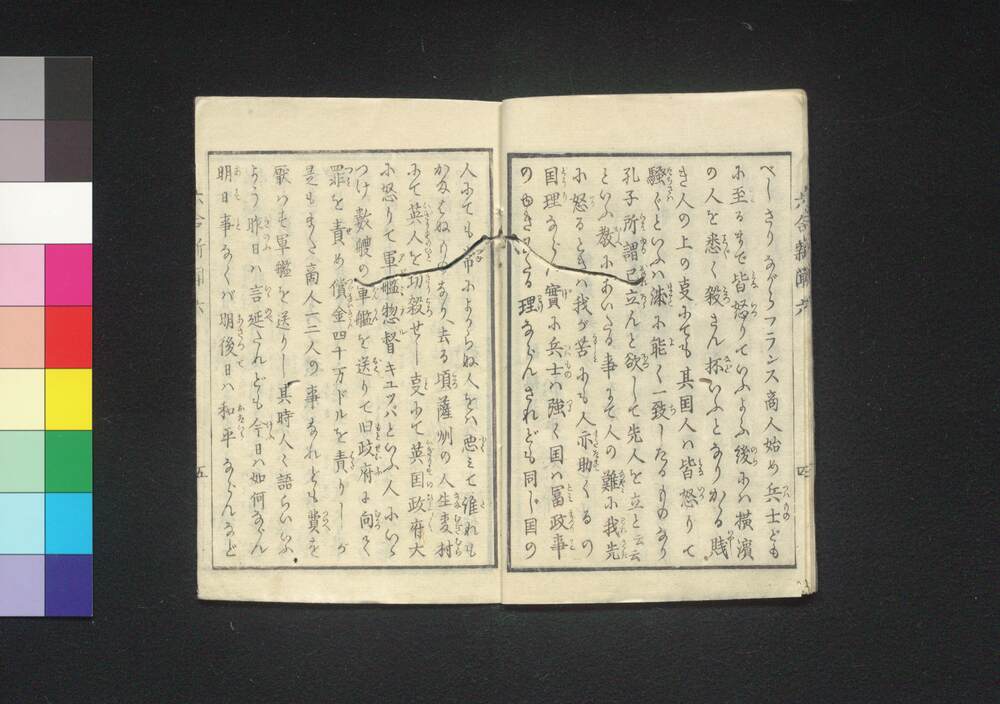 六合新聞 六
四
べしさりながらフランス商人始め兵士ども
に至るまで皆怒りていふよふ後には横濱
の人を悉く殺さん抔いふとなりかゝる賤
き人の上の事にても其国人は皆怒りて
騒ぐといふハ誠に能く一致したるものなり
孔子所謂己立んと欲して先人を立と云云
といふ教にあいたる事にて人の難に我先
に怒るときハ我が苦にも人亦助くるの
国理ならん實に兵士は強く国は冨政事
のゆきわたる理ならんされども同じ国の
人にても命によからぬ人をハ悪ミて誰れも
かなはぬりなり去る頃薩州の人生麦村
にて英人を切殺せし事にて英国政府大
に怒りて軍艦惣督キユツパといふ人にいゝ
つけ数艘の軍艦を送りて旧政府に向て
罪を責め償金四十万ドルを責りしが
是もまた商人一二人の事なれども費を
厭はず軍艦を送りし其時人々語らいいふ
よう昨日ハ言延たれども今日ハ如何ならん
明日事なくバ明後日ハ和平ならんなど
六合新聞 六
五